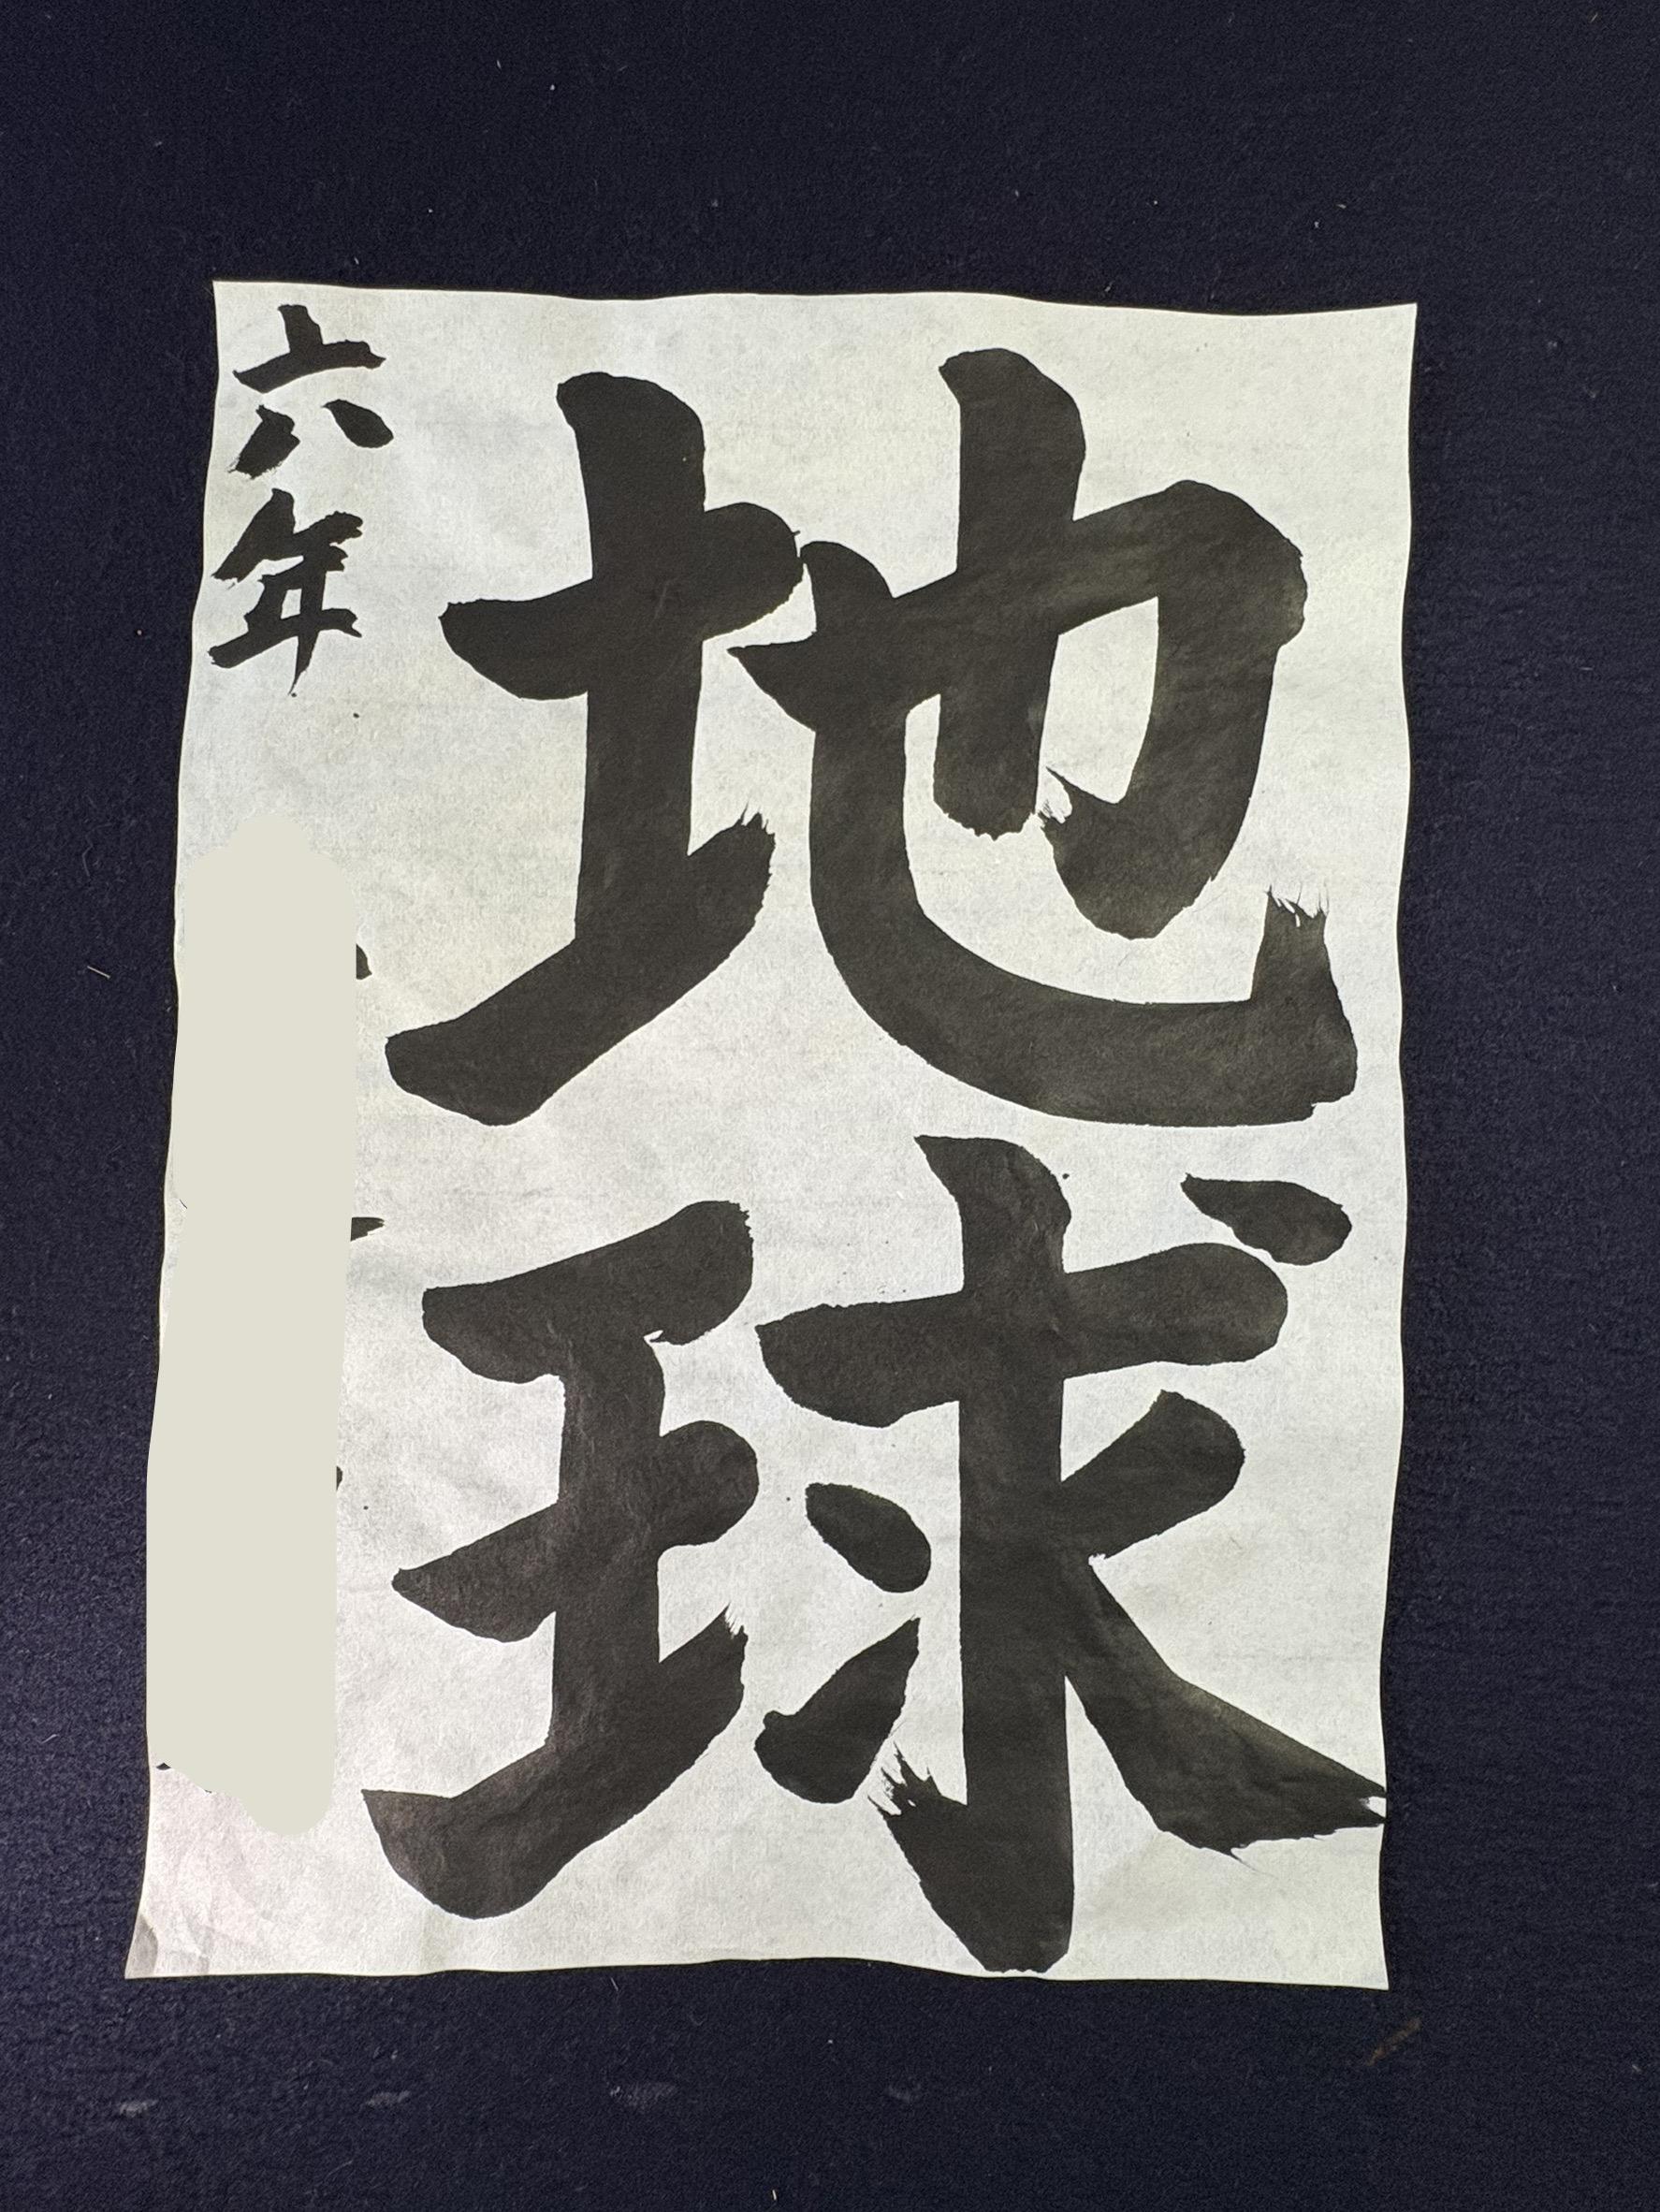 地球
六年